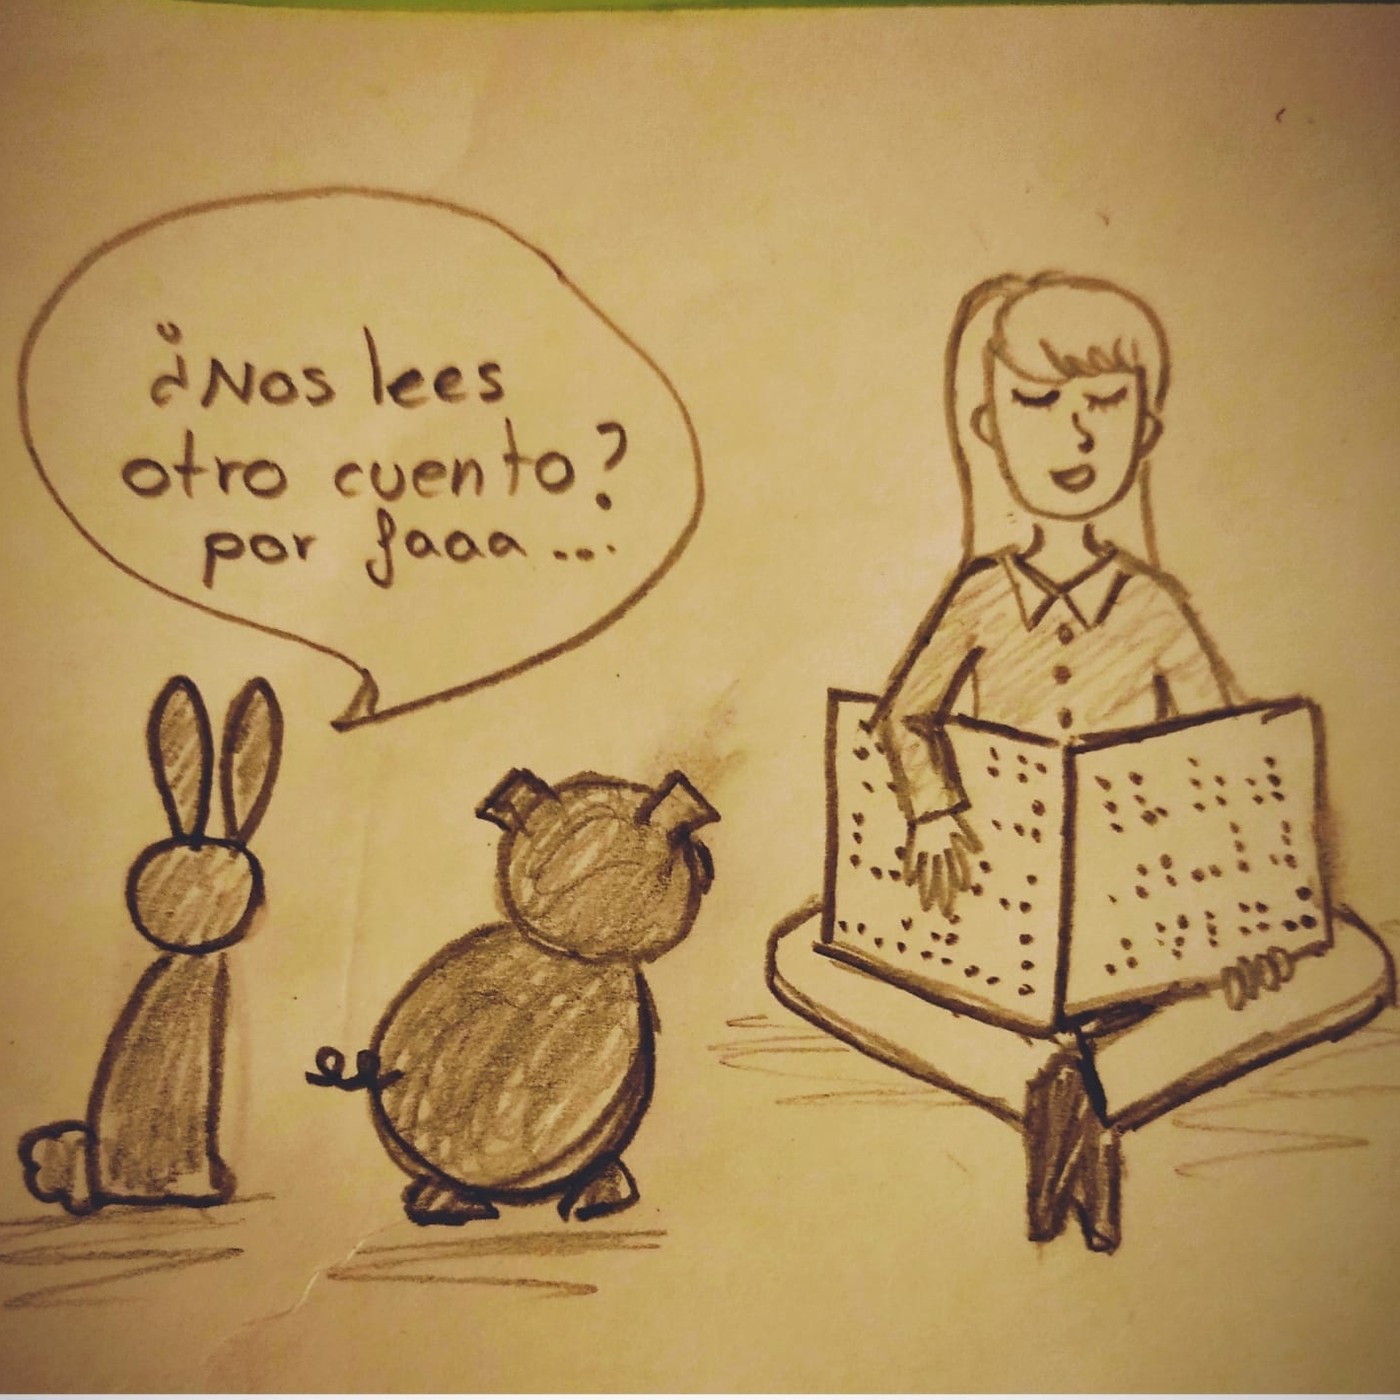 ¿Nos lees
otro cuento?
por faaa...